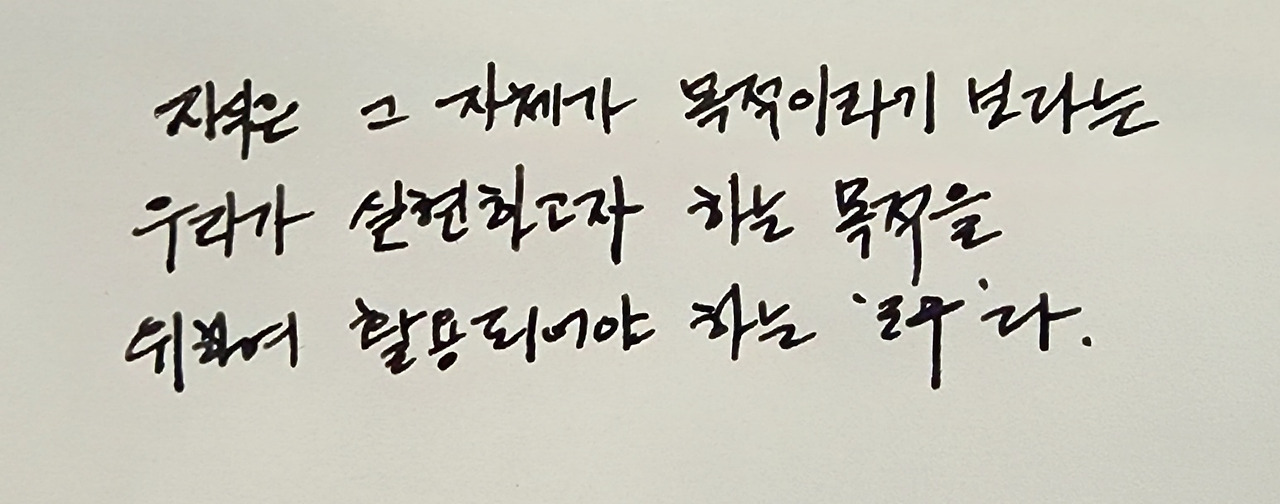 지식은 그 자체가 목적이라기 보다는
우리가 실현하고자 하는 목적을
위하여 활용되어야 하는 '도구'다.